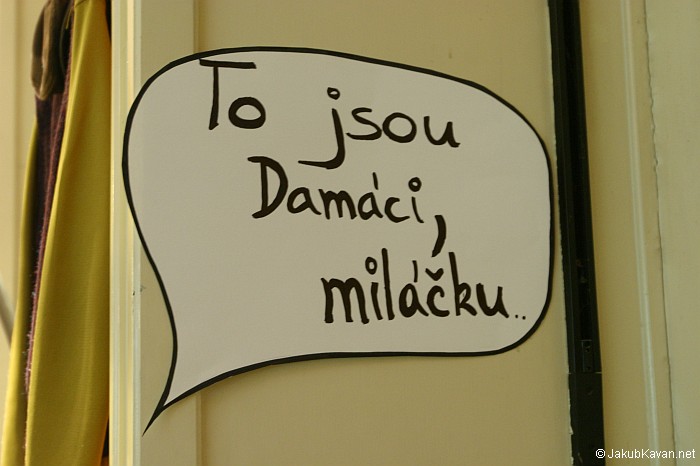 To jsou
Damáci,
miláčku..
© JakubKavan.net